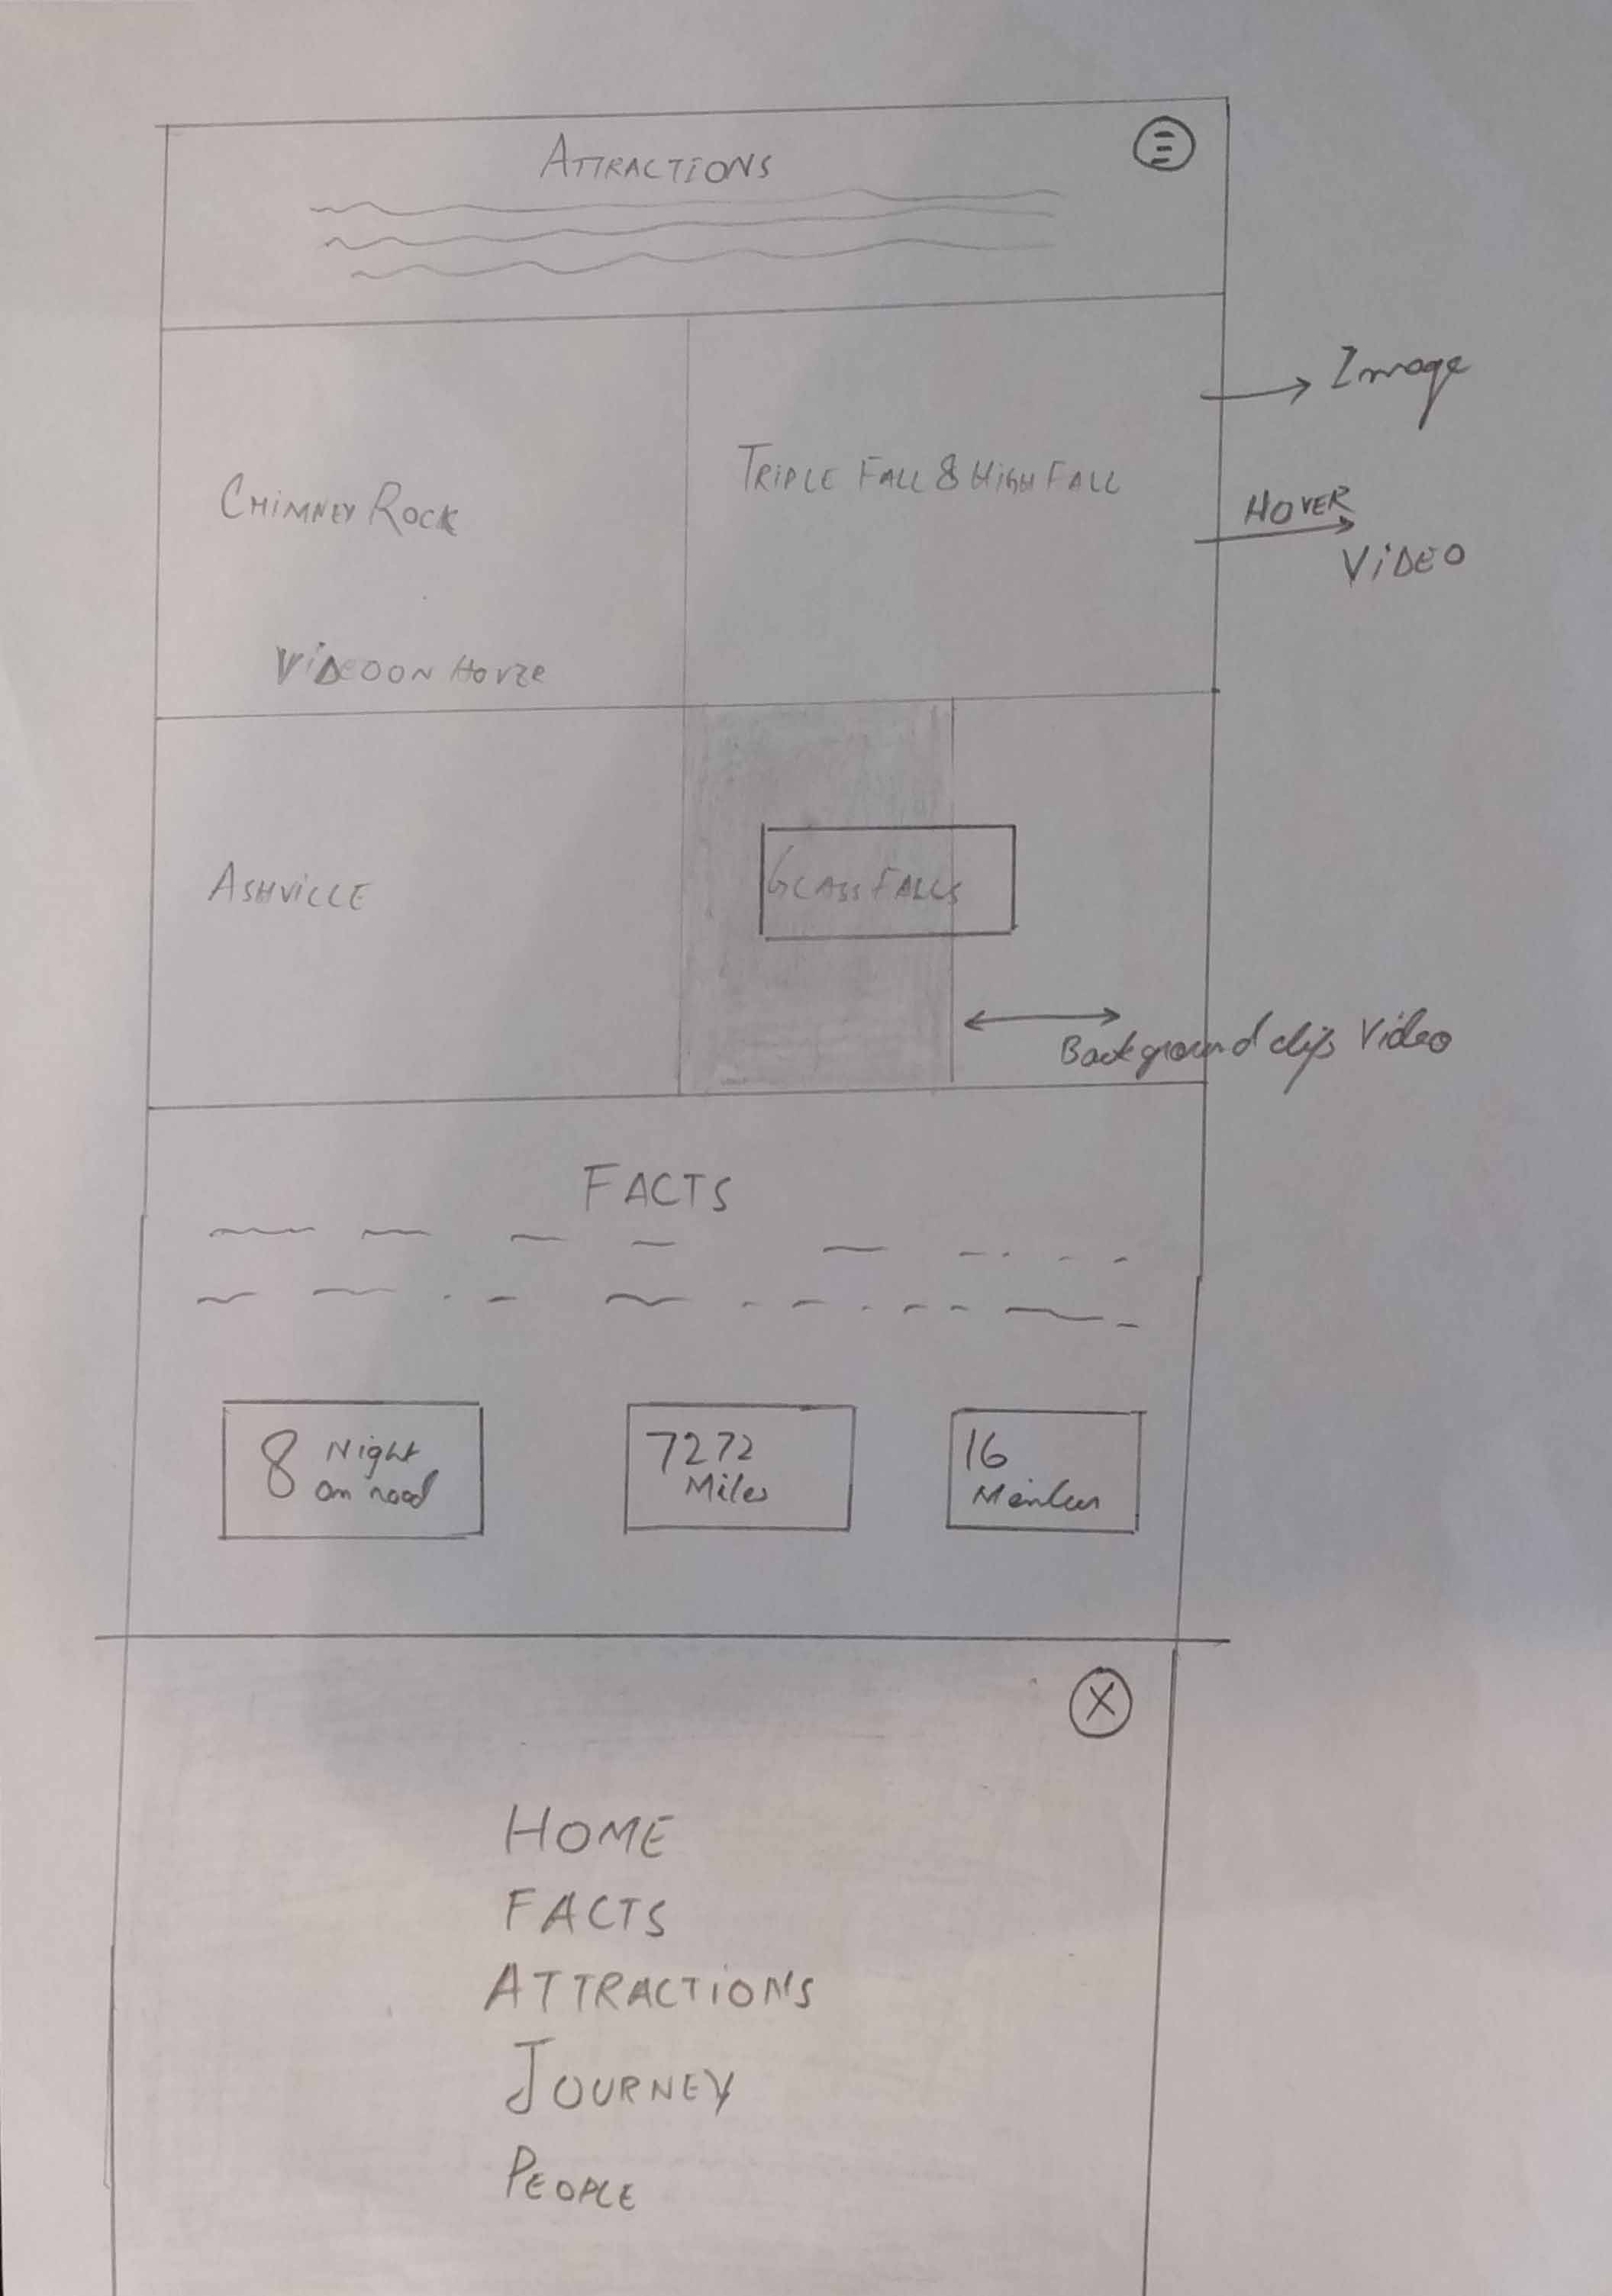 ATTRACTIONS
Image
TRIPLE FALL & HIGH FALL
CHIMNEY ROCK
HOVER
VIDEO
VIDEO ON HOVRE
ASHVILLE
GLASS FALLS
Background clips Video
FACTS
8 Night
on road
7272
Miles
16
X
HOME
FACTS
ATTRACTIONS
JOURNEY
PEOPLE